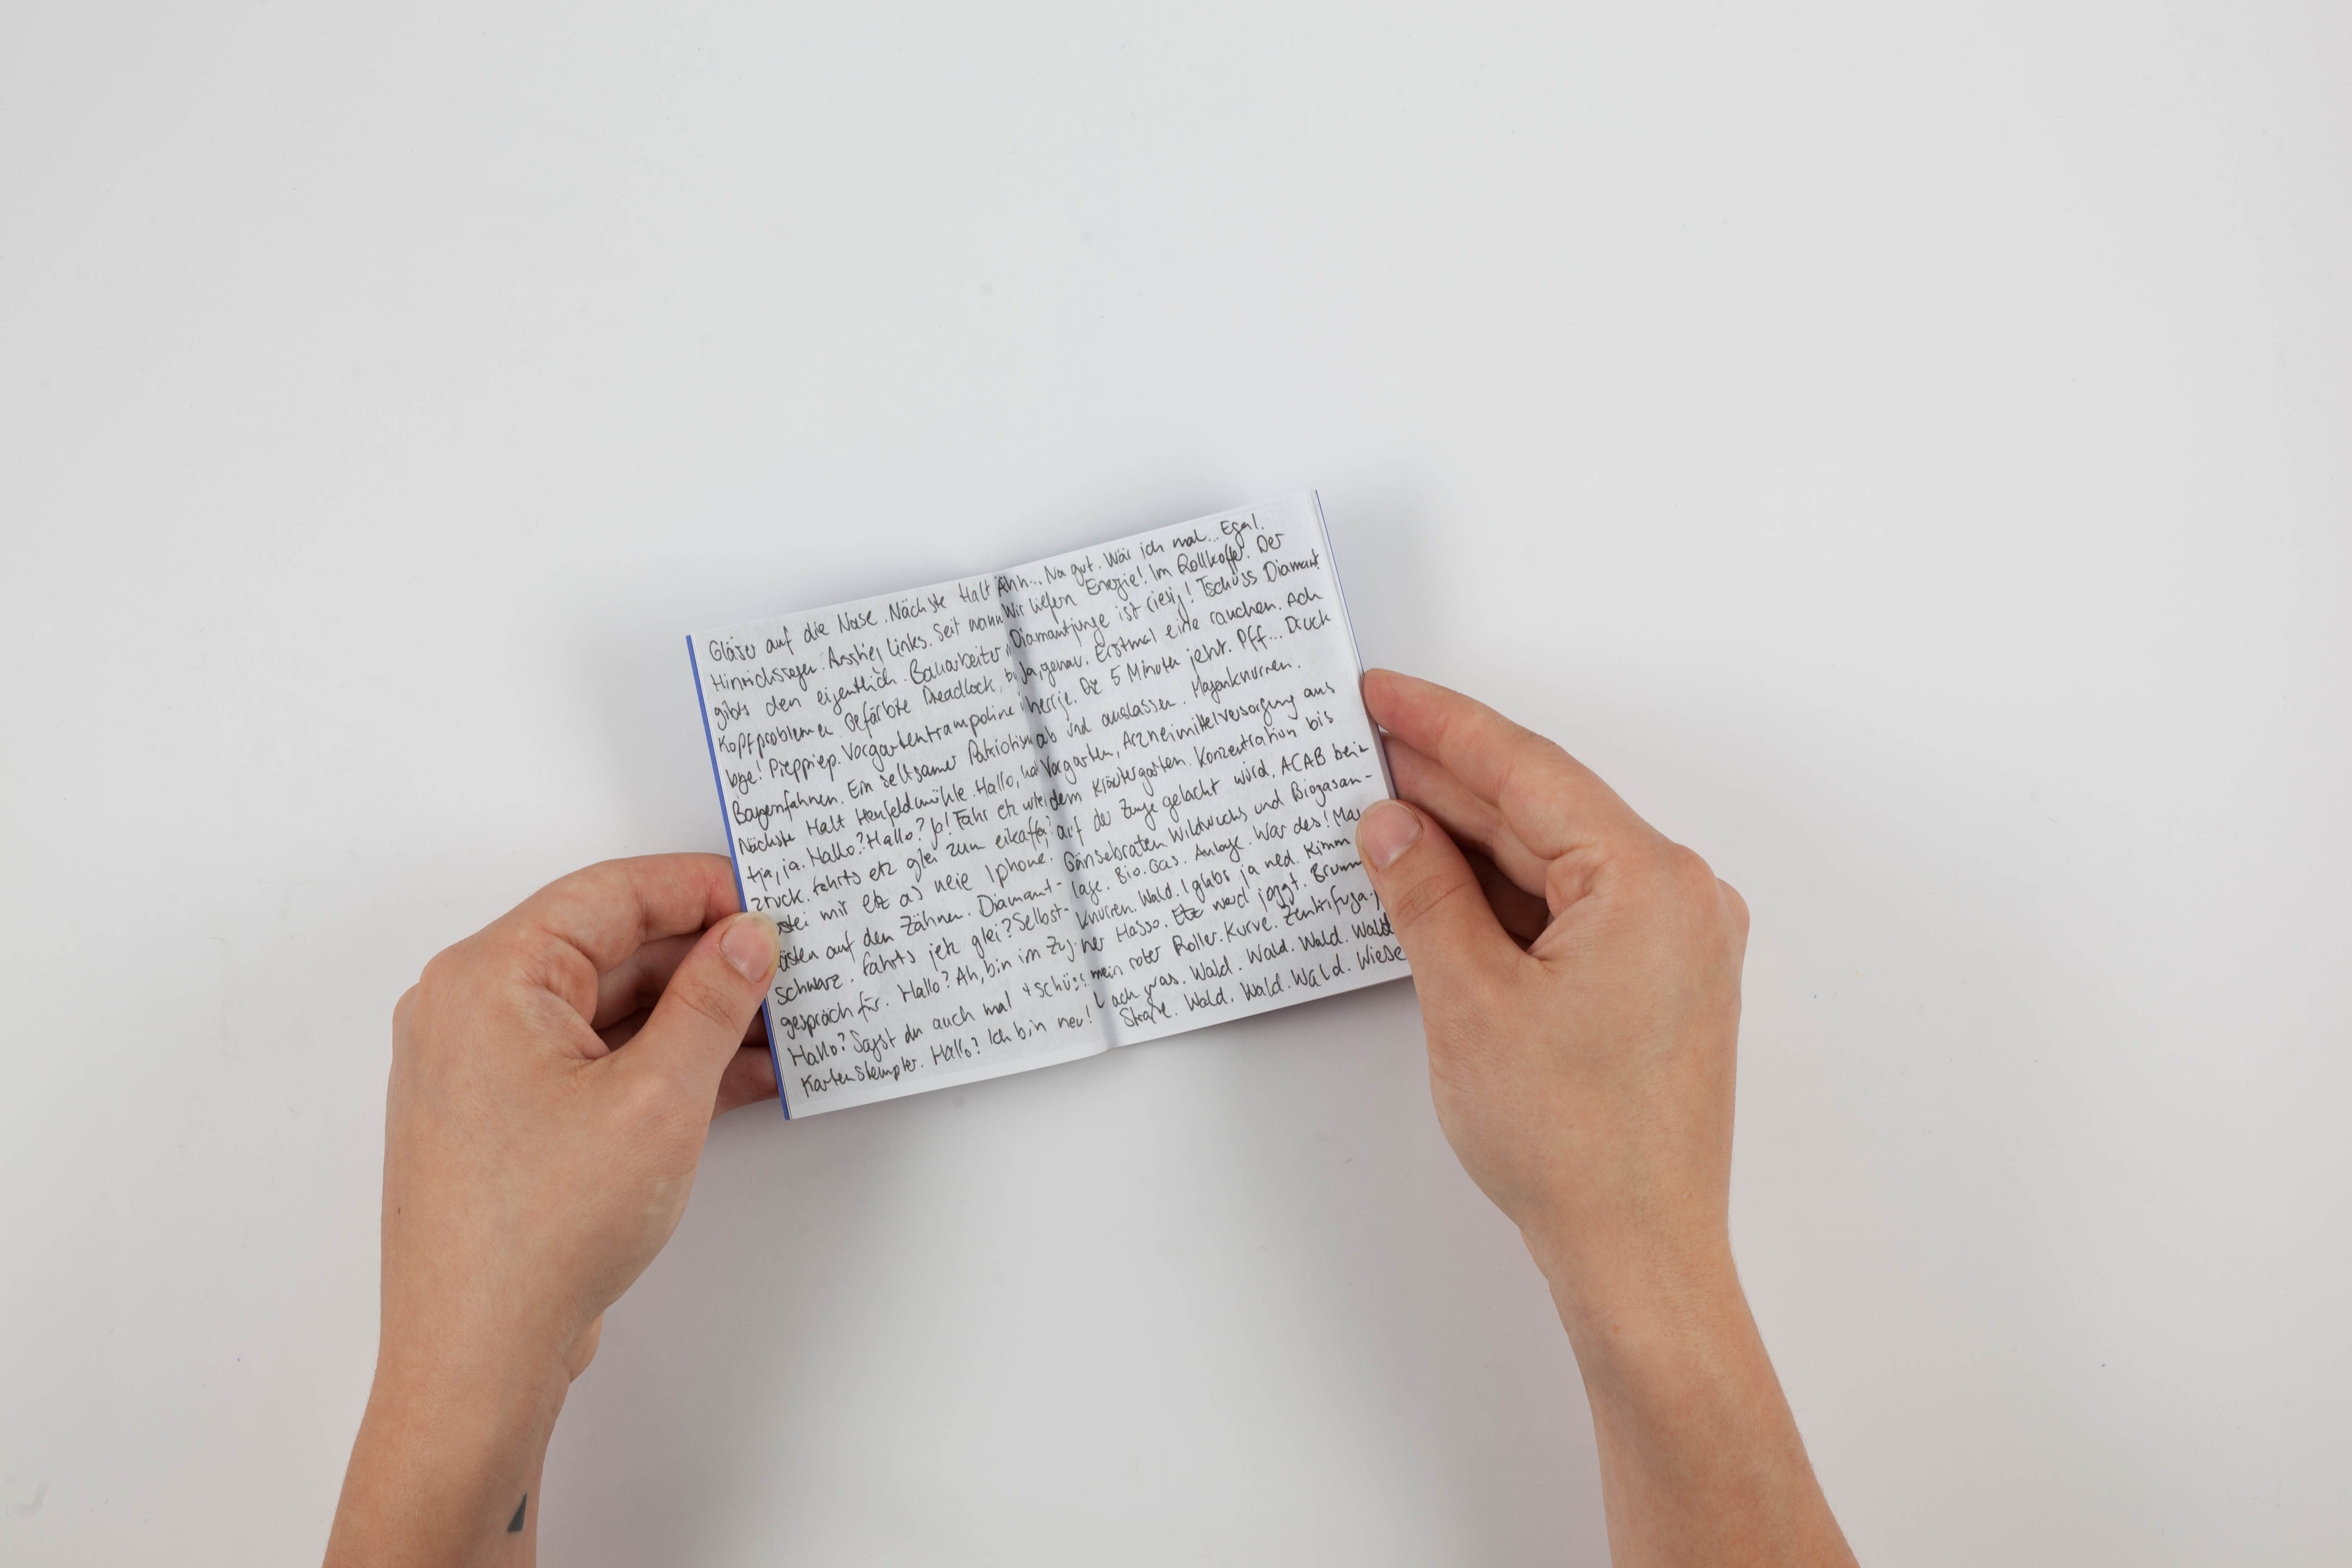 Gläser auf die Nase. Nächste Halt
Ausstieg Links. Seit wann
gibts den eigentlich. Bauarbeiter
Kopfprobleme. Gefärbte Dreadlock,
Pieppiep. Vorgartentrampoline
Bayernfahnen. Ein seltsamer
Nächste Halt Henfeldmühle. Hallo,
tja, ja. Hallo? Hallo? Ja! Fahr etz
zruck. Fahrts etz glei zum
mir etz as neie Iphone.
auf den Zähnen. Diamant-
schwarz. Fahrts jetz glei? Selbst-
gespräch für. Hallo? Ah, bin im Zug.
Hallo? Sagst du auch mal tschüss.
Kartenstempler. Hallo? Ich bin neu!
Ähh... Na gut. Wär ich mal... Egal.
Wir liefern Energie! Im Rollkoffer. Der
Diamantjunge ist riesig! Tschüss Diamant
Ja, genau. Erstmal eine rauchen. Ach
herrje. Die 5 Minuten jetzt. Pff... Druck
ab und auslassen. Magenknurren.
Vorgarten, Arzneimittelversorgung aus
dem Kräutergarten. Konzentration bis
auf der Zunge gelacht wird. ACAB beim
Gänsebraten. Wildwuchs und Biogasan-
lage. Bio. Gas. Anlage. War des! Ma
Knurren. Wald. I glabs ja ned. Kimm
her Hasso. Etz werd joggt. Brumm
mein roter Roller. Kurve. Zentrifuga
ach was. Wald. Wald. Wald. Wald
Straße. Wald. Wald. Wald. Wiese